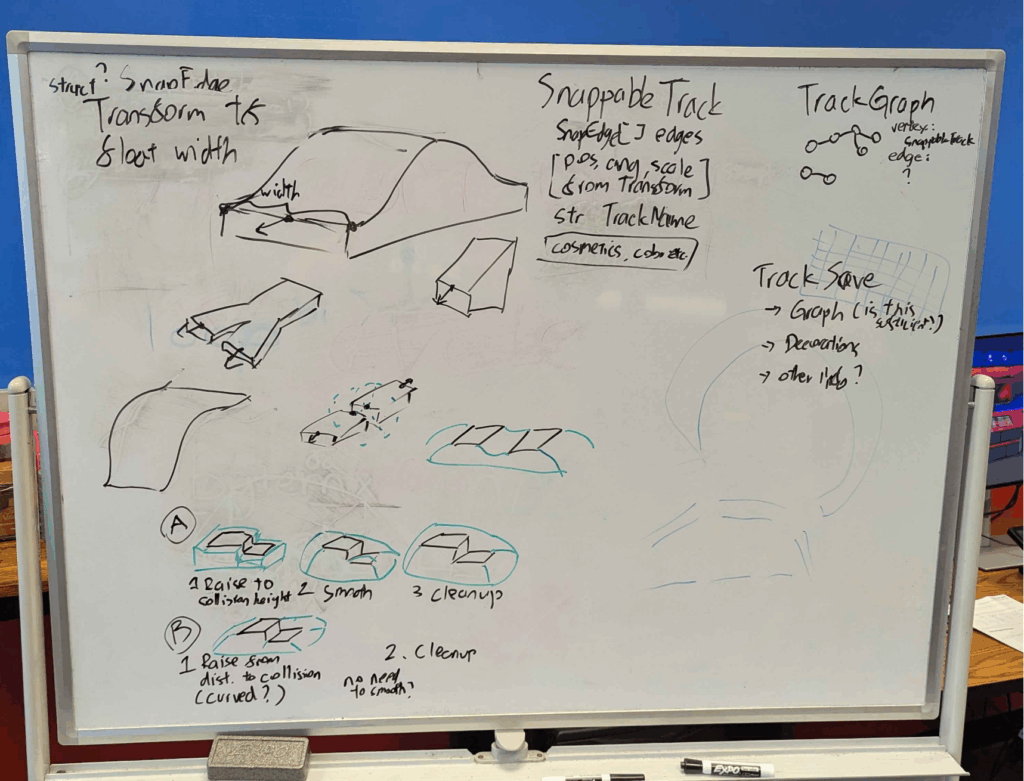 struct? SnapEdge
Transform tf
float width
width
Snappable Track
SnapEdge[] edges
[pos, ang, scale
from Transform]
str TrackName
cosmetics, color etc.
TrackGraph
vertex:
SnappableTrack
edge:
?
Track Save
→ Graph (is this
sufficient?)
→ Decorations
→ other info?
A
1 Raise to
collision height
2 Smooth
3 Cleanup
B
1 Raise from
dist. to collision
(curved?)
2. Cleanup
no need
to smooth?
EXPO